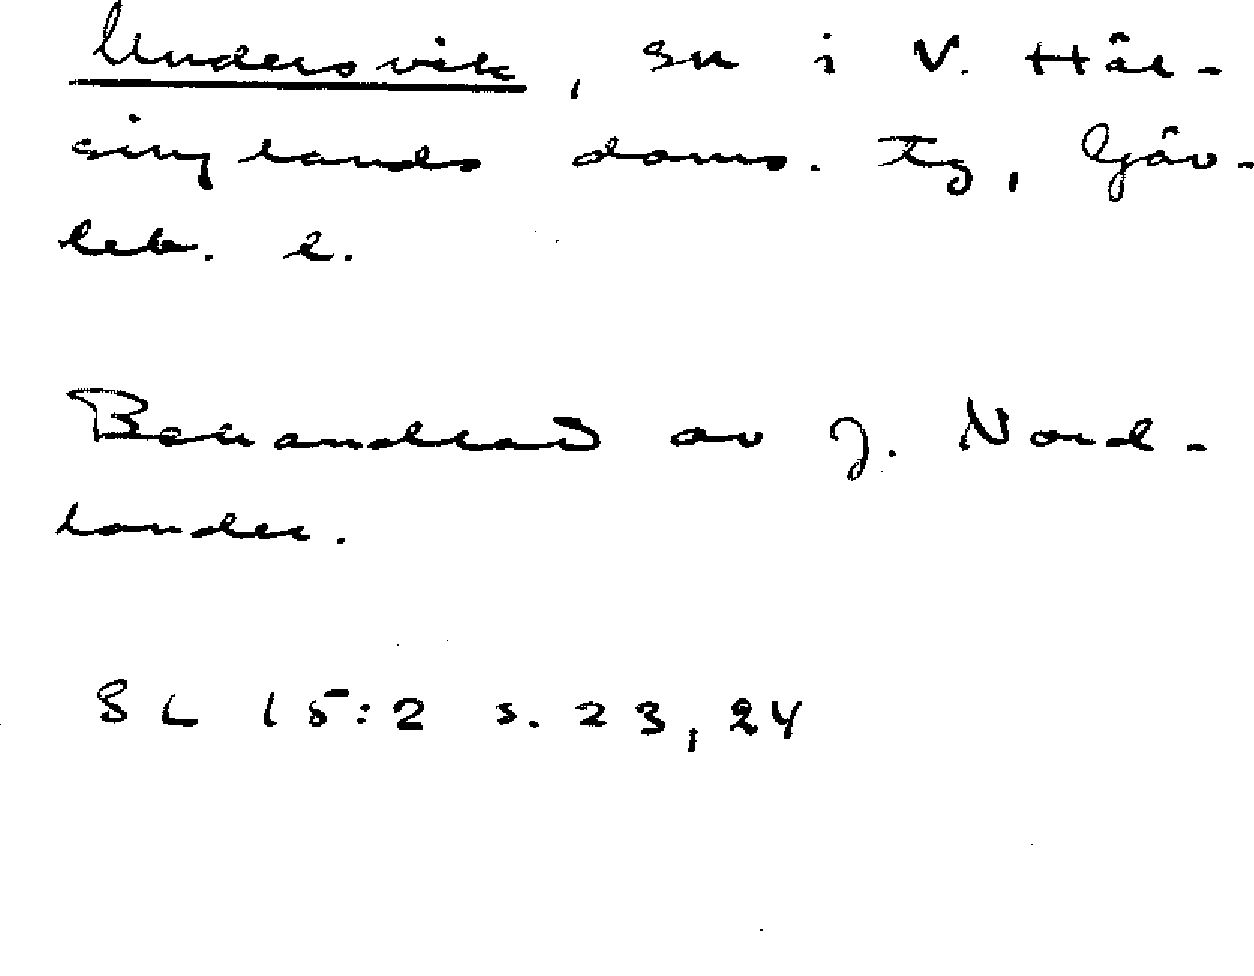 Undersvik, sn i V. Häl-
singlands doms. tg, Gäv-
leb. l.
Behandlad av J. Nord-
lander.
SL 15:2 s. 23, 24